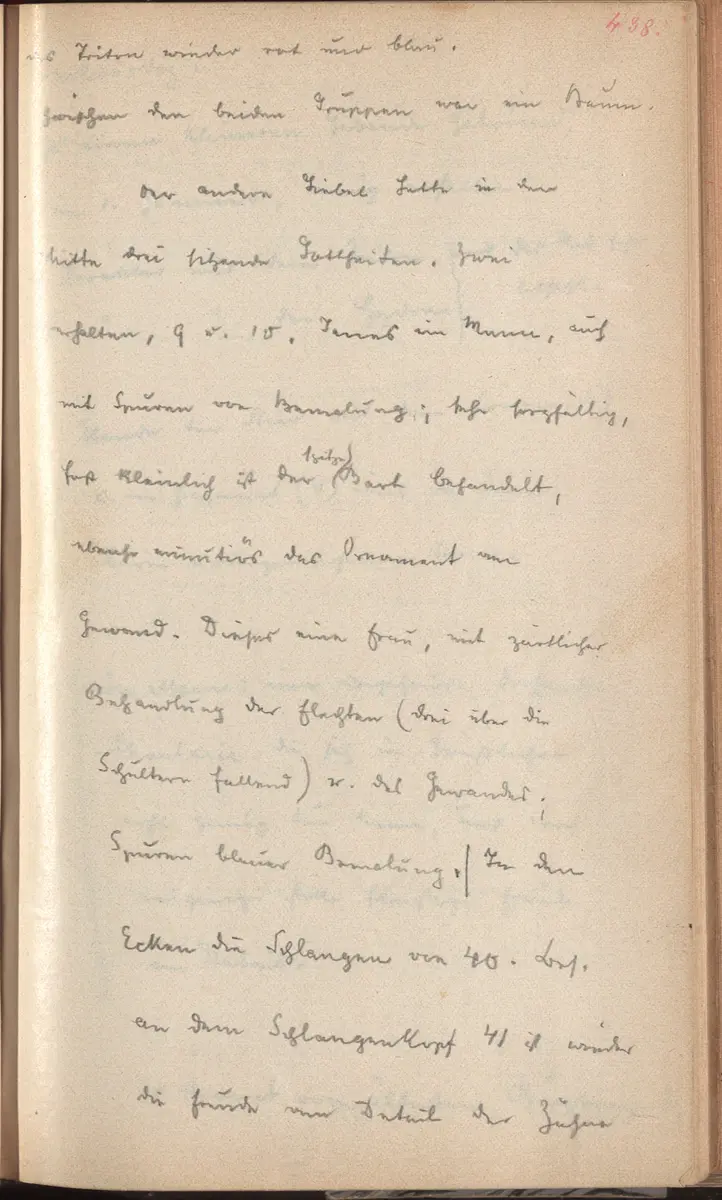 438.
des Triton wieder rot und blau.
zwischen den beiden Gruppen war ein Baum.
Der andere Giebel hatte in der
Mitte drei sitzende Gottheiten. Zwei
erhalten, 9 u. 10. Jenes ein Mann, auch
mit Spuren von Bemalung; sehr sorgfältig,
fast kleinlich ist der (spitze) Bart behandelt,
ebenso minutiös das Ornament am
Gewand. Dieses eine Frau, mit zärtlicher
Behandlung der Flechten (drei über die
Schultern fallend) u. des Gewandes;
Spuren blauer Bemalung. | In den
Ecken die Schlangen von 40. Bes.
an dem Schlangenkopf 41 ist wieder
die Freude am Detail der Zähne